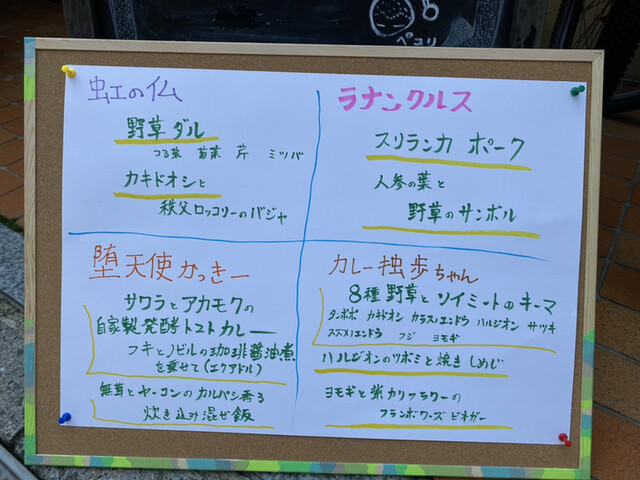 ペコリ
虹の仏
野草ダル
つる菜 苗菜 芹 ミツバ
カキドオシと
秩父ロッコリーのバジャ
ラナンクルス
スリランカ ポーク
人参の葉と
野草のサンボル
堕天使かっきー
サワラとアカモクの
自家製発酵トマトカレー
フキとノビルの珈琲醤油煮
を乗せて(エクアドル)
無茸とヤーコンのカルパシ香る
炊き込み混ぜ飯
カレー独歩ちゃん
8種野草とソイミートのキーマ
タンポポ カキドオシ カラスノエンドウ ハルジオン サツキ
スズメノエンドウ フジ ヨモギ
ハルジオンのツボミと焼きしめじ
ヨモギと紫カリフラワーの
フランボワーズ ビネガー